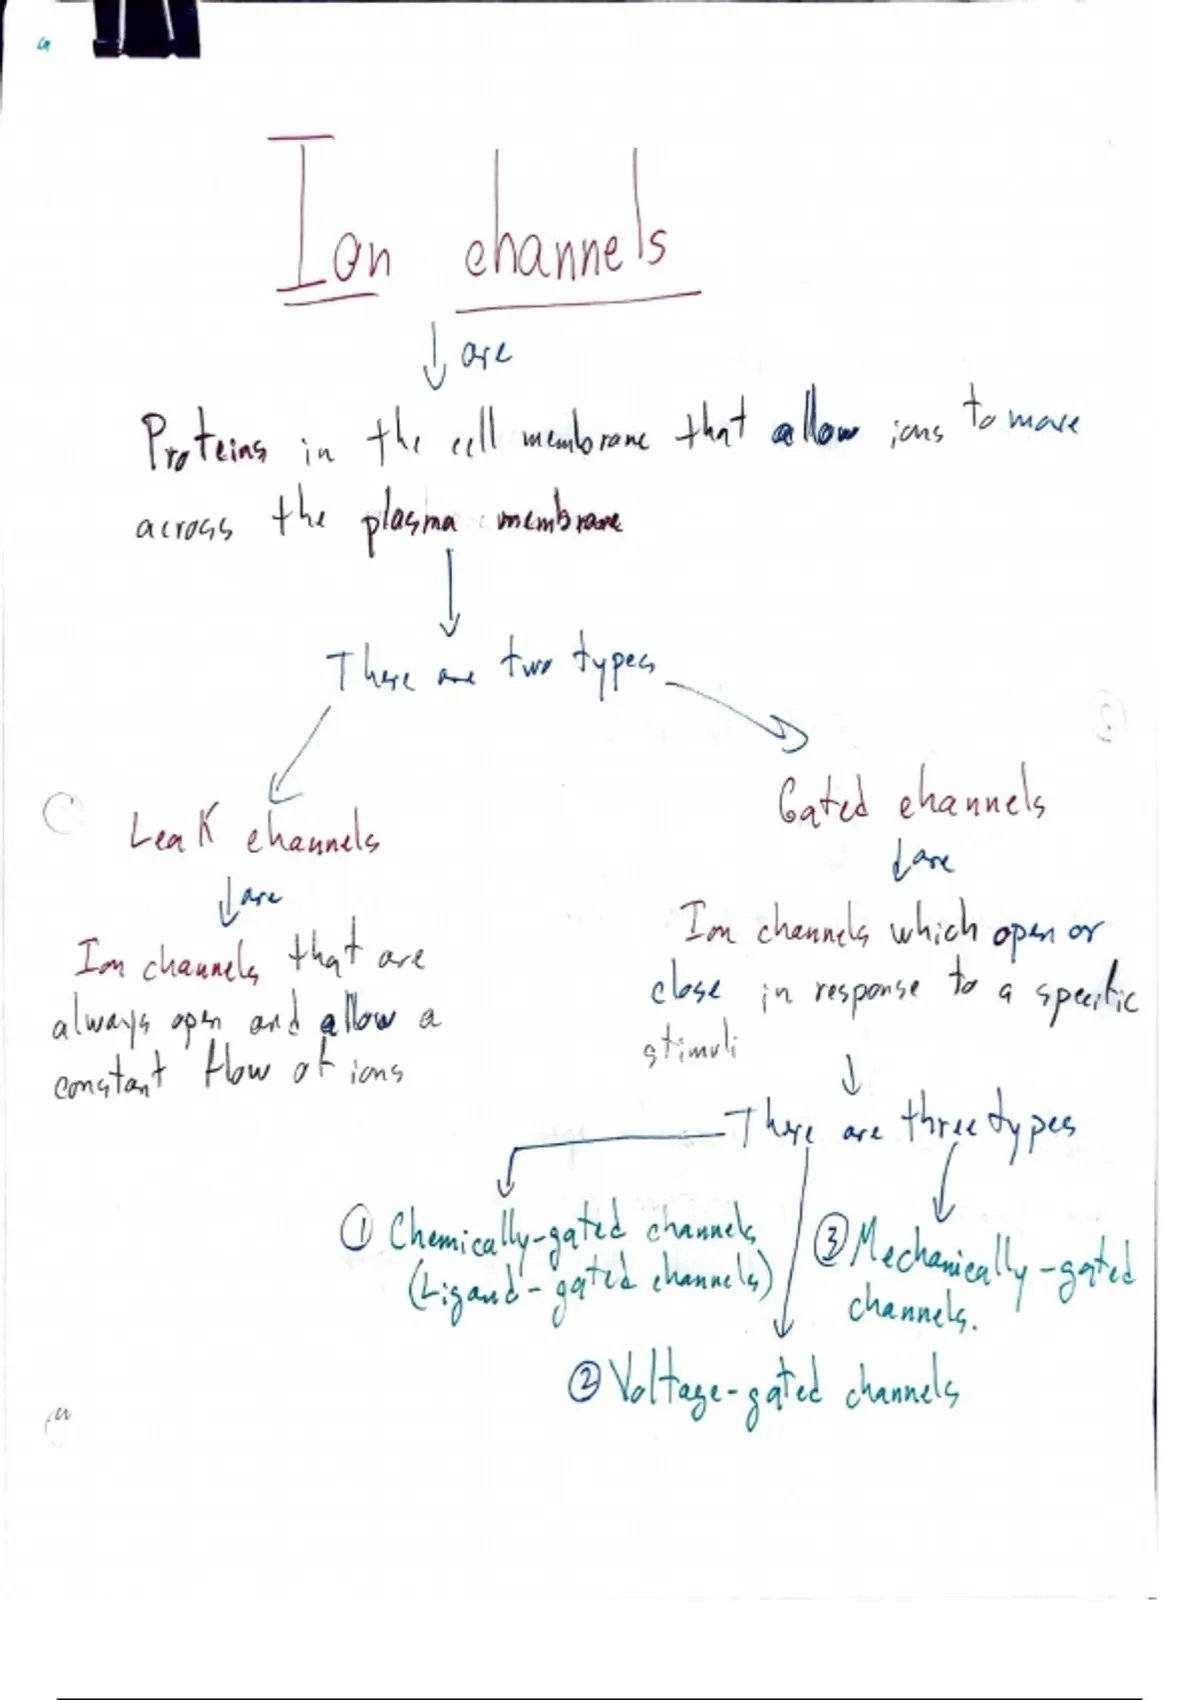 Ion channels
are
Proteins in the cell membrane that allow ions to move
across the plasma membrane
There are two types
Leak channels
are
Ion channels that are
always open and allow a
constant flow of ions
Gated channels
are
Ion channels which open or
close in response to a specific
stimuli
There are three types
① Chemically-gated channels
(Ligand-gated channels)
② Voltage-gated channels
③ Mechanically-gated
channels.